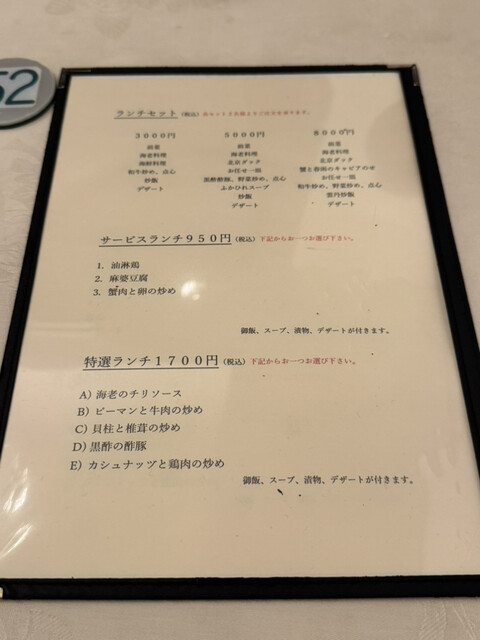 52
ランチセット (税込)
3000円 5000円 8000円
前菜 前菜 前菜
海老料理 海老料理 海老料理
海鮮料理 北京ダック 北京ダック
和牛炒め、点心 お任せ一品 蟹と春雨のキャビアのせ
炒飯 黒酢酢豚、野菜炒め、点心 お任せ一品
デザート ふかひれスープ 和牛炒め、野菜炒め、点心
炒飯
デザート デザート
サービスランチ950円 (税込) 下記からお一つお選び下さい。
1. 油淋鶏
2. 麻婆豆腐
3. 蟹肉と卵の炒め
御飯、スープ、漬物、デザートが付きます。
特選ランチ1700円 (税込) 下記からお一つお選び下さい。
A) 海老のチリソース
B) ピーマンと牛肉の炒め
C) 貝柱と椎茸の炒め
D) 黒酢の酢豚
E) カシュナッツと鶏肉の炒め
御飯、スープ、漬物、デザートが付きます。